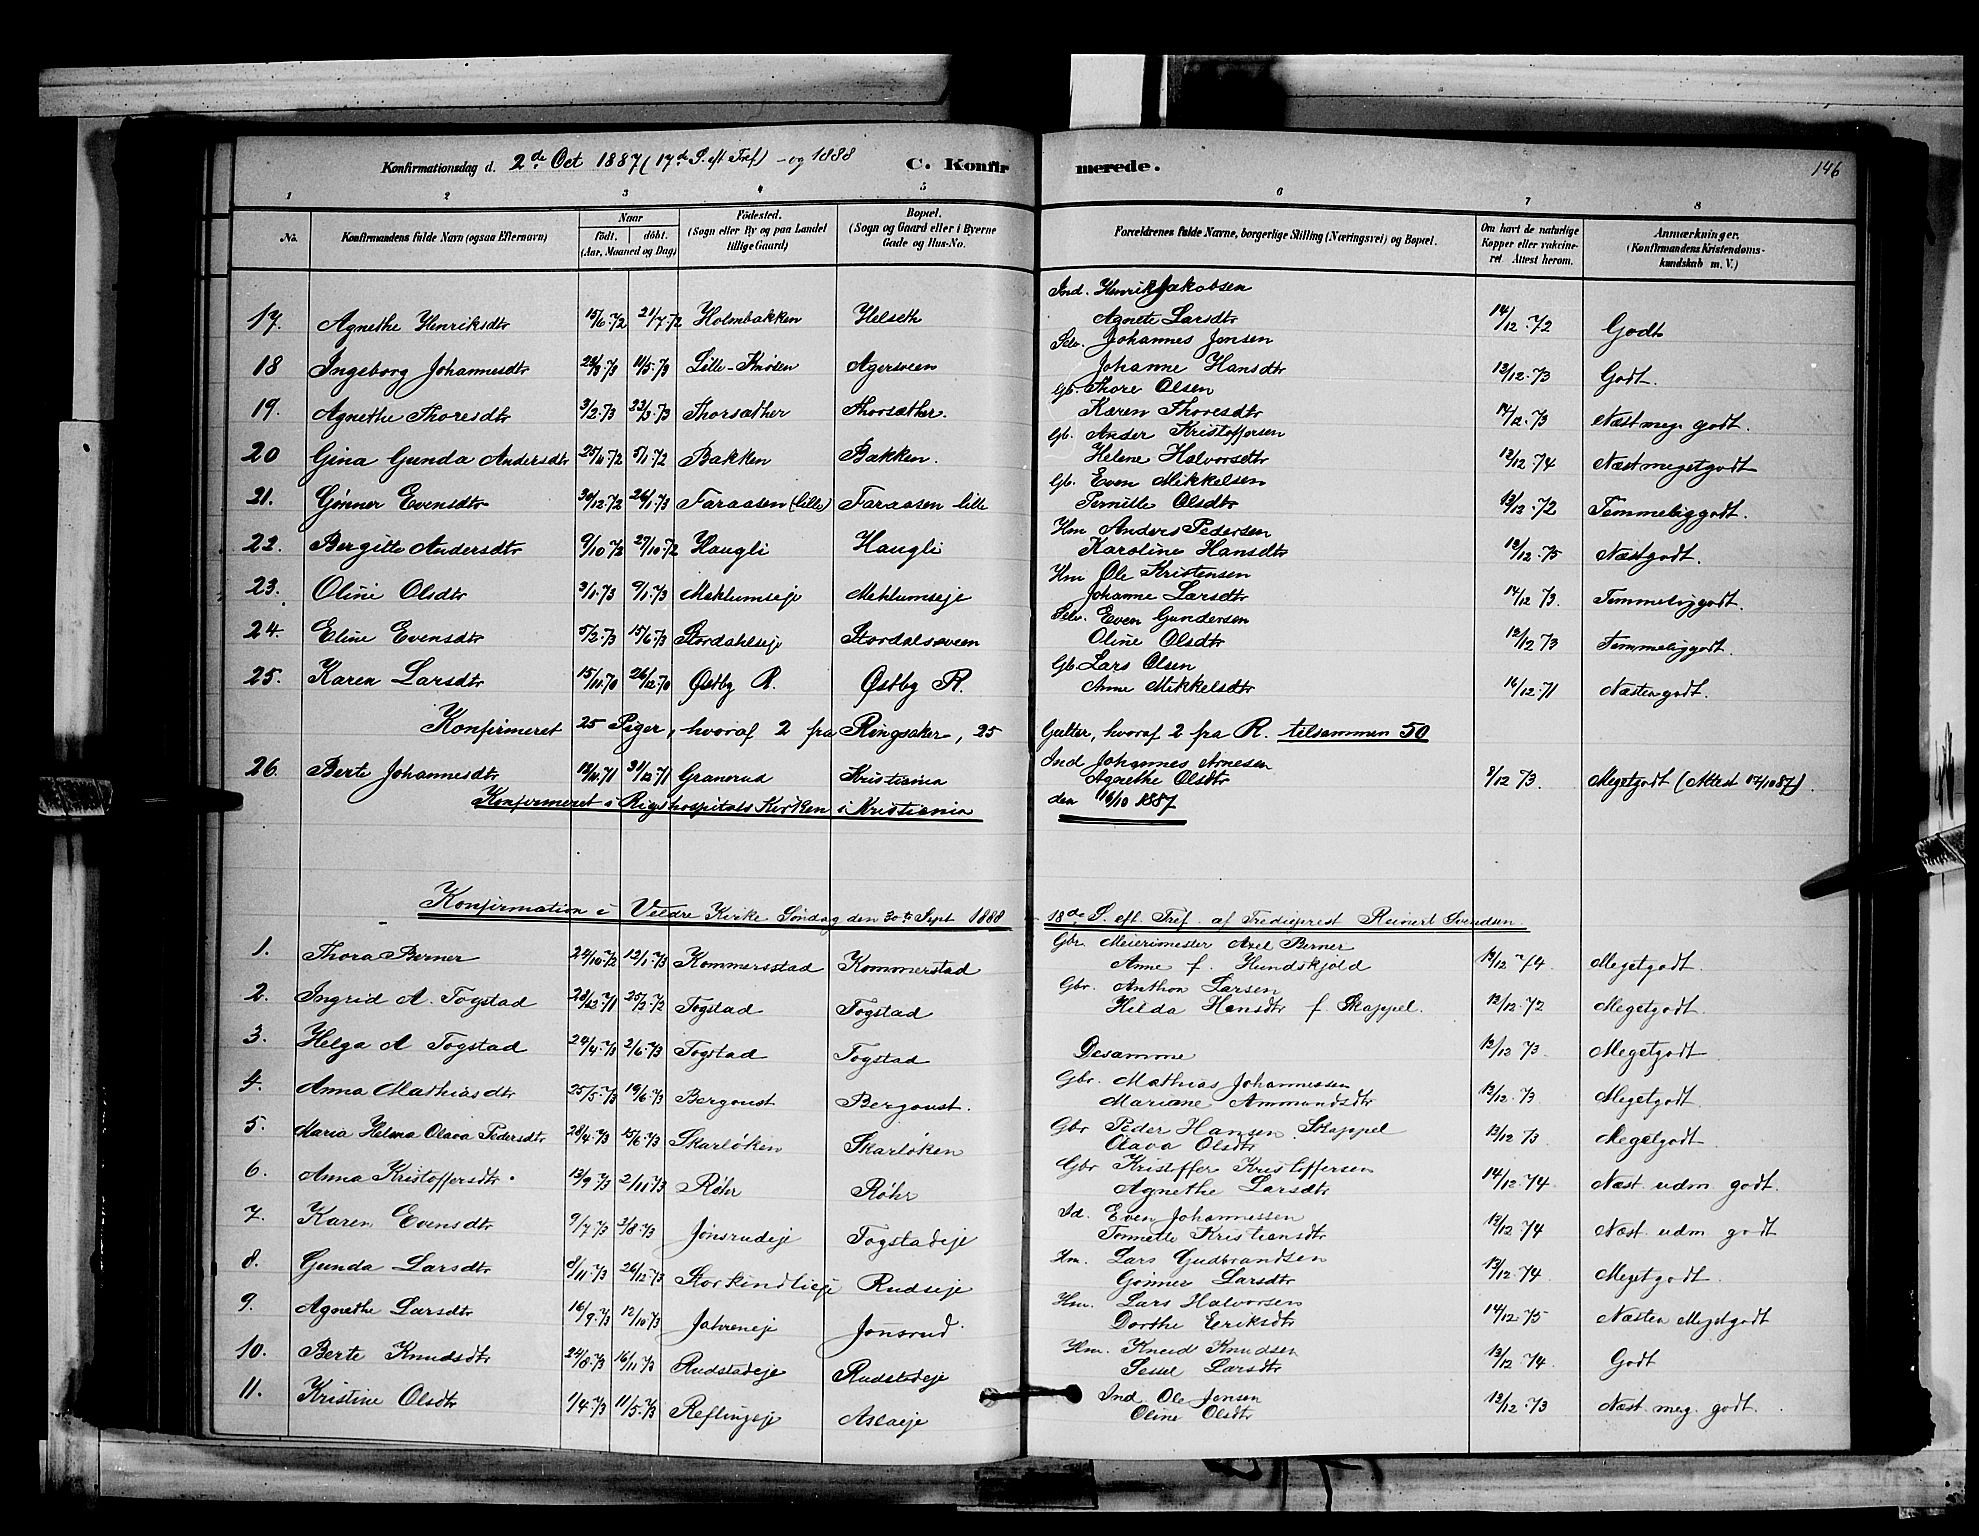 Konfirmationsdag d. 2de Oct 1887 (17de S. eft Tref) - og 1888 C. Konfirmerede. 146
1 2 3 4 5 6 7 8
No. Konfirmandens fulde Navn (ogsaa Efternavn) Naar født, døbt. (Aar, Maaned og Dag) Fødested. (Sogn eller By og paa Landet tillige Gaard) Bopæl. (Sogn og Gaard eller i Byerne Gade og Hus-No. Forældrenes fulde Navne, borgerlige Stilling (Næringsvei) og Bopæl. Om havt de naturlige Kopper eller vakcineret Attest herom. Anmærkninger. (Konfirmandens Kristendomskundskab m. V.)
Ind. Henrik Jakobsen
17. Agnethe Henriksdtr 15/6 72 21/7 72 Holmbakken Helseth Agnete Larsdtr 14/12 72 Godt
Selv. Johannes Jensen
18 Ingeborg Johannesdtr 11/5 73 Agersveen Johanne Hansdtr 13/12 73 Godt.
Gb. Thore Olsen
19. Agnethe Thoresdtr 3/2 73 23/3 73 Thorsæther Thorsæther. Karen Thoresdtr 14/12 73 Næst meg. godt.
Gb. Ander Kristoffersen
20 Gina Gunda Andersdtr Bakken Bakken. Helene Halvorsdtr 13/12 74 Næst meget godt
Gb. Even Mikkelsen
21. Gønner Evensdtr 30/12 72 26/1 73 Faraasen (lille) Faraasen lille Pernille Olsdtr 13/12 72 Temmelig godt.
Hm Anders Pedersen
22. Bergitte Andersdtr 9/10 72 27/10 72 Haugli Haugli Karoline Hansdtr 13/12 75 Næst godt.
Hm Ole Kristensen
23. Oline Olsdtr 3/1 73 9/1 73 Meklumseje Meklumseje Johanne Larsdtr 14/12 73. Temmelig godt.
Selv. Even Gundersen
24. Eline Evensdtr 5/2 73 15/6 73 Stordahlseje Stordalsveen Oline Olsdtr 12/12 73 Temmelig godt.
Gb. Lars Olsen
25. Karen Larsdtr 15/11 70 26/12 70 Østby R. Østby R. Anne Mikkelsdtr 16/12 71 Næsten godt.
Konfirmeret 25 Piger, hvoraf 2 fra Ringsaker, 25 Gutter, hvoraf 2 fra R. tilsammen 50
Ind Johannes Arnesen
26. Berte Johannesdtr 31/12 71 Granerud Kristiania Agnethe Olsdtr 8/12 73. Meget godt (Attest 17/10 87).
Konfirmeret i Rigshospitals Kirken i Kristiania den 16/10 1887
Konfirmation i Veldre Kirke Søndag den 30te Sept 1888 18de S. eft Tref. af Tredieprest Reinert Svendsen
Gbr. Meierimester Axel Berner
1. Thora Berner 24/10 72 12/1 73 Kommerstad Kommerstad Anne f. Hundskjold 13/12 74. Meget godt.
Gbr. Anthon Larsen
2. Ingrid A. Togstad 28/12 71 25/3 72 Togstad Togstad Hilda Hansdtr f. Skappel. 12/12 72 Meget godt.
3. Helga A Togstad 24/4 73 2/6 73 Togstad Togstad Desamme 12/12 73. Meget godt
Gbr. Mathias Johannessen
4. Anna Mathiasdtr 25/5 73 19/6 73 Bergoust Bergoust. Mariane Ammundsdtr 13/12 73. Meget godt.
Gbr Peder Hansen Skappel
5. Maria Helma Olava Pedersdtr 28/4 73 15/6 73 Skarløken Skarløken Olava Olsdtr 13/12 73 Meget godt.
Gbr Kristoffer Kristoffersen
6. Anna Kristoffersdtr. 13/9 73 2/11 73 Røhr Røhr Agnethe Larsdtr 14/12 74. Næst udm godt.
Id. Even Johannessen
7. Karen Evensdtr 9/7 73 3/8 73 Jønsrudeje Togstadeje Tonnette Kristiansdtr 13/12 74 Næst. udm godt
Hm. Lars Gudbrandsen
8. Gunda Larsdtr 8/11 73 26/12 73 Storkindlieje Rudseje Gønner Larsdtr 13/12 74. Meget godt.
Hm. Lars Halvorsen
9. Agnethe Larsdtr 16/9 73 12/10 73 Jahreneje Jonsrud. Dorthe Eriksdtr 14/12 75 Næsten Meget godt
Hm. Knud Knudsen
10. Berte Knudsdtr 24/8 73 16/11 73 Rudstadeje Rudstadeje Sessel Larsdtr 13/12 74. Godt
Ind Ole Jensen
11. Kristine Olsdtr 1/4 73 11/5 73 Reflingeje Aslaeje Oline Olsdtr 12/12 73 Næst. meg. godt.